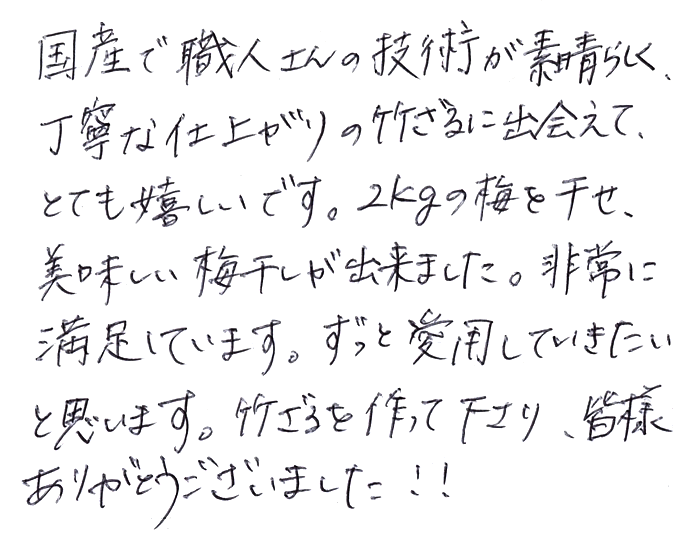 国産で職人さんの技術が素晴らしく、
丁寧な仕上がりの竹ざるに出会えて、
とても嬉しいです。2kgの梅を干せ、
美味しい梅干しが出来ました。非常に
満足しています。ずっと愛用していきたい
と思います。竹ざるを作って下さり、皆様
ありがとうございました!!